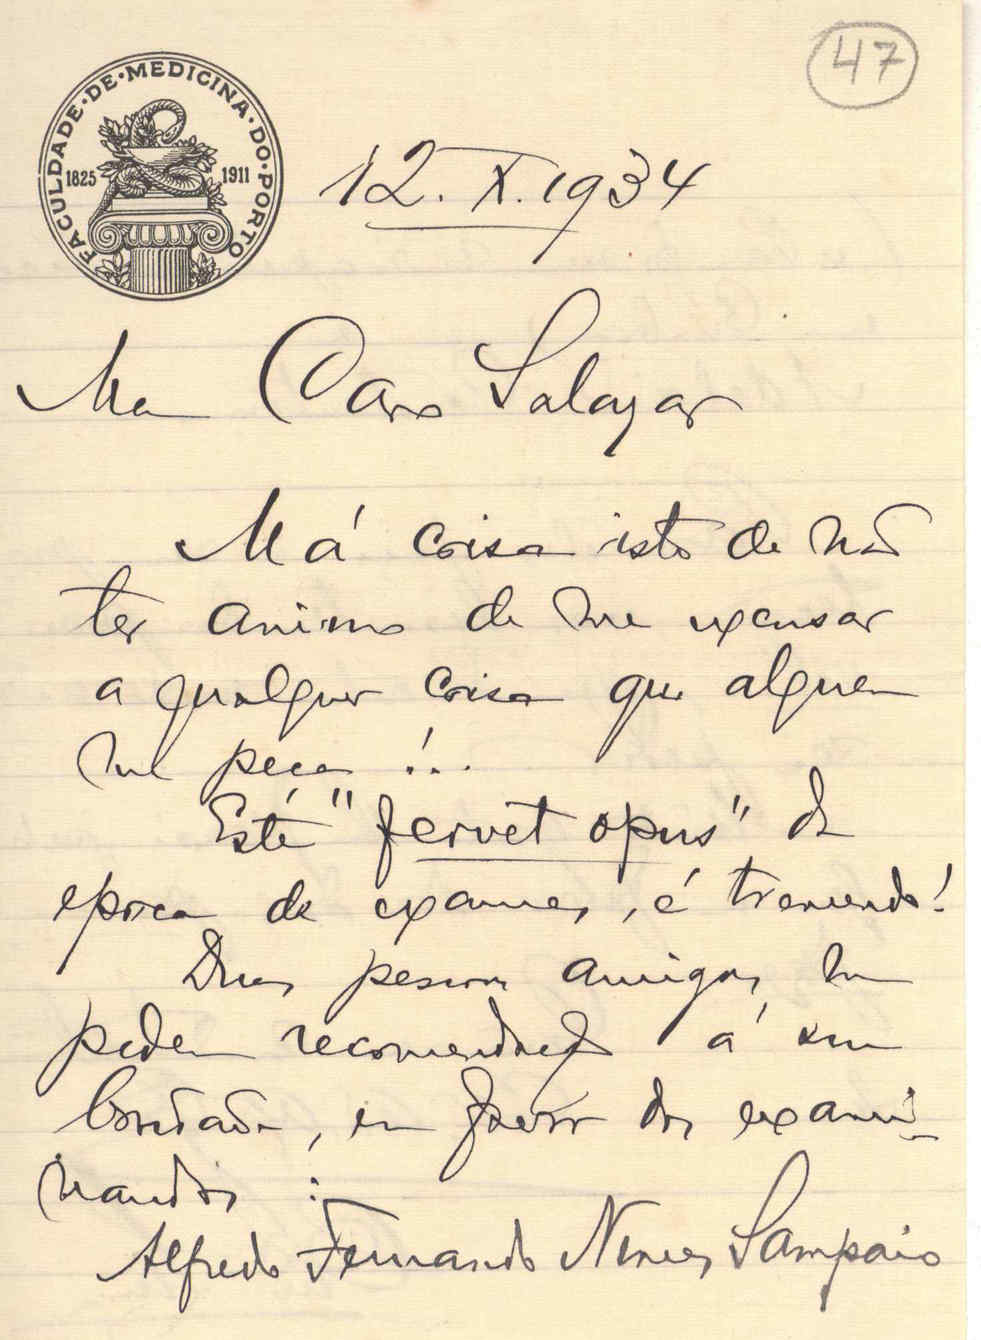 47
FACULDADE·DE·MEDICINA·DO·PORTO
1825 1911
12.X.1934
Meu Caro Salazar
Má coisa isto de não
ter animo de me excusar
a qualquer coisa que alguem
me peça!...
Este "fervet opus" da
epoca de exames, é tremendo!
Duas pessoas amigas me
pedem recomendação á sua
bondade, em favor dos exami-
nandos:
Alfredo Fernando Nunes Sampaio